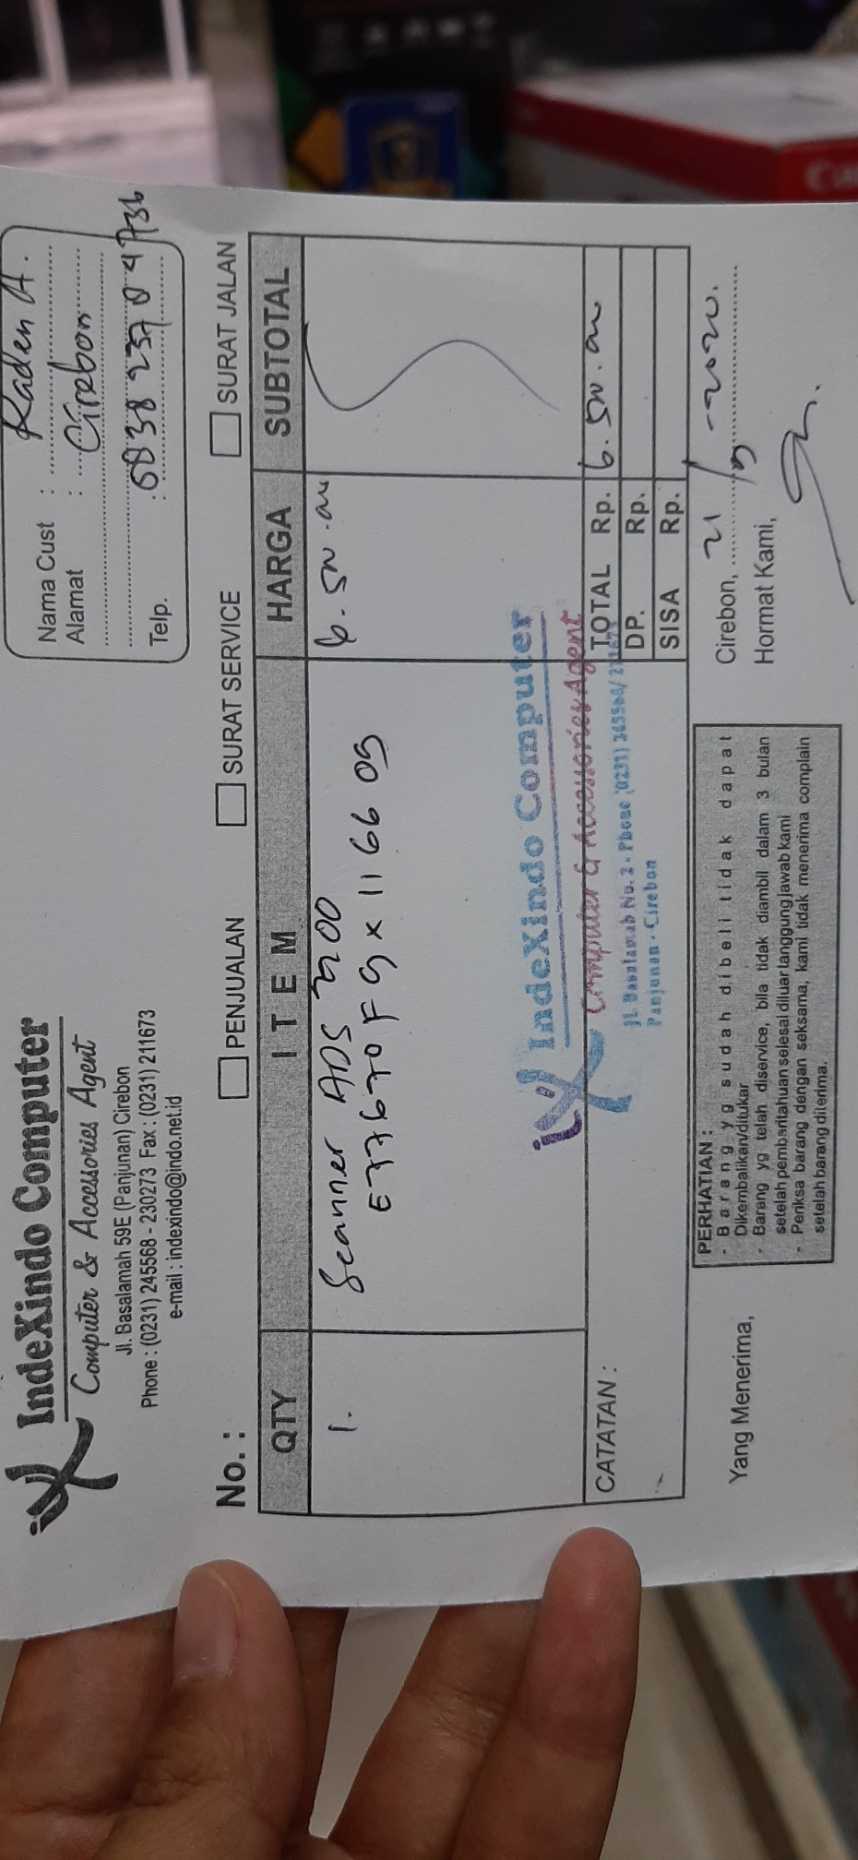 IndeXindo Computer
Computer & Accessories Agent
Jl. Basalamah 59E (Panjunan) Cirebon
Phone : (0231) 245568 - 230273 Fax : (0231) 211673
e-mail : indexindo@indo.net.id
Nama Cust : Raden A.
Alamat : Cirebon
Telp. :
No. : PENJUALAN SURAT SERVICE SURAT JALAN
QTY ITEM HARGA SUBTOTAL
1. Scanner ADS
IndeXindo Computer
Computer & Accessories Agent
Jl. Basalamah No. 2 - Phone (0231)
Panjunan - Cirebon
CATATAN :
TOTAL Rp.
DP. Rp.
SISA Rp.
PERHATIAN :
- Barang yg sudah dibeli tidak dapat
Dikembalikan/ditukar
- Barang yg telah diservice, bila tidak diambil dalam 3 bulan
setelah pemberitahuan selesai diluar langgung jawab kami
- Periksa barang dengan seksama, kami tidak menerima complain
setelah barang diterima.
Cirebon, 21
Hormat Kami,
Yang Menerima,
Ca